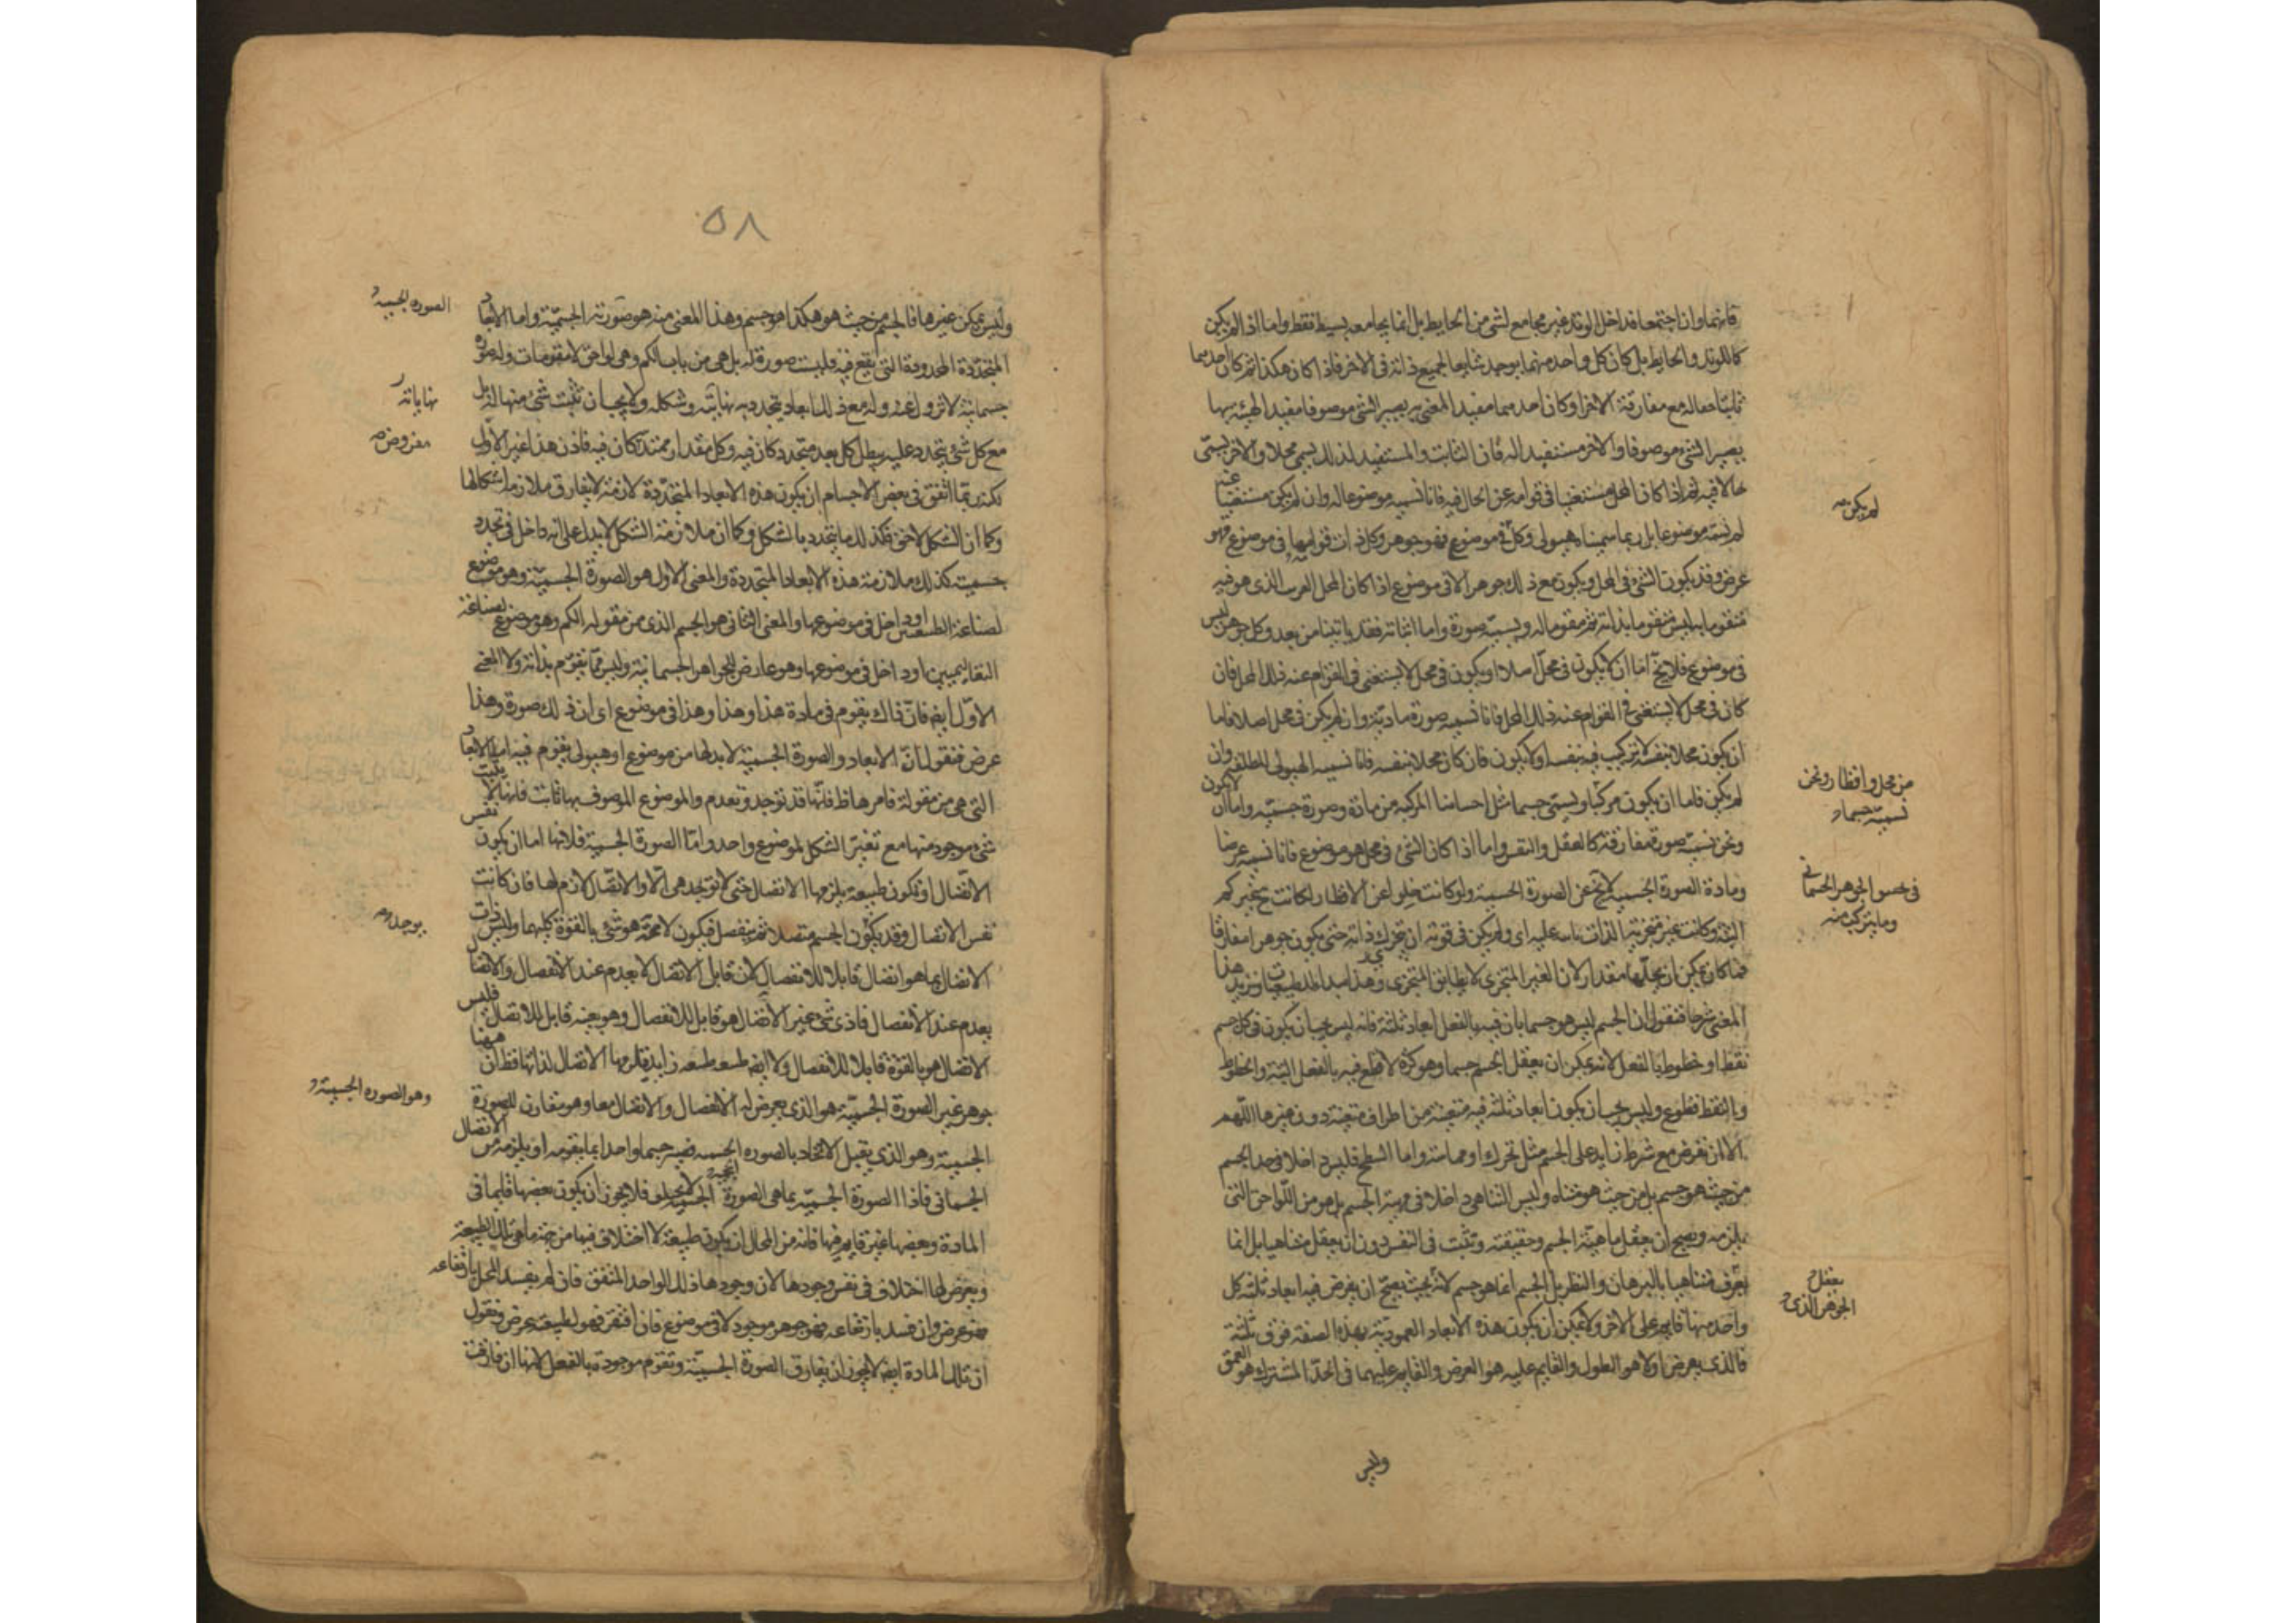 فانهما وان اجتمعا فداخل الوتد غير مجامع لشئ من الحايط بل انما يجامعه ببسيطه فقط واما اذا لم يكن
كالوتد والحايط بل كان كل واحد منهما يوجد شايعا لجميع ذاته فى الاخر فاذا كان هكذا ثم كان احدهما
ثابتا حاله مع مفارقة الاخر او كان احدهما مفيدا لمعنى به يصير الشئ موصوفا مفيد الهيئة بها
يصير الشئ موصوفا والاخر مستفيدا له فان الثابت والمستفيد لذلك يسمى محلا والاخر يسمى
حالا فيه ثم اذا كان المحل مستغنيا فى قوامه عن الحال فيه فانا نسميه موضوعا له وان لم يكن مستغنيا عنه
لم نسمه موضوعا بل ربما سميناه هيولى وكل ذات لم يكن فى موضوع فهو جوهر وكل ذات قوامها فى موضوع فهو
لم يكن صح
عرض وقد يكون الشئ فى المحل ويكون مع ذلك جوهرا لا فى موضوع اذا كان المحل القريب الذى هو فيه
متقوما به ليس متقوما بذاته ثم مقوما له ويسميه صورة واما اثباته فقد ياتينا من بعد وكل جوهر ليس
فى موضوع فلا يخ اما ان لا يكون فى محل اصلا او يكون فى محل لا يستغنى فى القوام عنه ذلك المحل فان
كان فى محل لا يستغنى فى القوام عنه ذلك المحل فانا نسميه صورة مادية وان لم يكن فى محل اصلا فاما
ان يكون محلا بنفسه لا تركيب فيه بنفسه او لا يكون فان كان محلا بنفسه فانا نسميه الهيولى المطلقة وان
من محل واقطار ونحن
نسميه جسما و
لم يكن فاما ان يكون مركبا ويسمى جسما مثل اجسامنا المركبة من مادة وصورة جسمية واما ان لا يكون
ونحن نسميه صورة مفارقة كالعقل والنفس واما اذا كان الشئ فى محل هو موضوع فانا نسميه عرضا
فى الجوهر الجسمانى
وما يتركب منه
ومادة الصورة الجسمية لا يخ عن الصورة الجسمية ولو كانت خلوا عن الاقطار لكانت ح غير كم
البتة وكانت غير متجزية الذات عليه اى ولم يكن فى قوته ان يتجزى ذاته حتى يكون جوهرا مفارقا
فما كان يمكن ان يحلها مقدار لان الغير المتجزى لا يطابق المتجزى وهذا مبدا للطبيعيات ونزيد هذا
المعنى شرحا فنقول ان الجسم ليس هو جسما بان فيه بالفعل ابعاد ثلثة فانه ليس يجب ان يكون فى كل جسم
نقطا او خطوطا بالفعل لانه يمكن ان يعقل الجسم جسما وهو كرة لا قطع فيه بالفعل البتة والخطوط
والنقط قطوع وليس يجب ان يكون ابعاد ثلثة فيه متعينة من اطراف متعينة دون غيرها اللهم
الا ان نفرض مع شرط زايد على الجسم مثل تحرك او مماسة واما السطح فليس داخلا فى حد الجسم
من حيث هو جسم بل من حيث هو متناه وليس التناهى داخلا فى مهية الجسم بل هو من اللواحق التى
يلزمه ويصح ان يعقل ماهية الجسم وحقيقته ويثبت فى النفس دون ان يعقل متناهيا بل انما
يعقل
يعرف متناهيا بالبرهان والنظر بل الجسم انما هو جسم لانه بحيث يصح ان يفرض فيه ابعاد ثلثة كل
الجوهر الذى
واحد منها قايم على الاخر ولا يمكن ان يكون هذه الابعاد العمودية بهذه الصفة فوق ثلثة
فالذى يعرض اولا هو الطول والقايم عليه هو العرض والقايم عليهما فى الحد المشترك هو العمق
وليس
٥٨
وليس يمكن غيرها فالجسم من حيث هو هكذا هو جسم وهذا المعنى منه هو صورته الجسمية واما الابعاد
الصورة الجسمية و
المتحددة المحدودة التى يقع فيه فليست صورة له بل هى من باب الكم وهى لواحق لا مقومات وله صورة
جسمانية لا تزول عنه وله مع ذلك ابعاد يتحدد به نهايته وشكله ولا يجب ان يثبت شئ منها له بل
نهاياته
مع كل شئ يتجدد عليه يبطل كل بعد متحدد كان فيه وكل مقدار ممتد كان فيه فاذن هذا غير الاول
مفروض صح
لكنه ربما اتفق فى بعض الاجسام ان يكون هذه الابعاد المتحددة لازمة لا يفارق ملازمة اشكالها
وكما ان الشكل لاحق فكذلك ما يتحدد بالشكل وكما ان ملازمة الشكل لا يدل على انه داخل فى تحدد
جسميته كذلك ملازمة هذه الابعاد المتحددة والمعنى الاول هو الصورة الجسمية وهو موضوع
لصناعة الطبيعيين او داخل فى موضوعها والمعنى الثانى هو الجسم الذى من مقولة الكم وهو موضوع لصناعة
التعاليميين او داخل فى موضوعها وهو عارض للجواهر الجسمانية وليس مما يتقوم بذاته ولا المعنى
الاول ايض فان ذاك يقوم فى مادة هذا وهذا وهذا فى موضوع اى ان ذلك صورة وهذا
عرض فنقول ان الابعاد والصورة الجسمية لا بد لها من موضوع او هيولى يقوم فيه اما الابعاد
التى هى من مقولة فامرها ظ فانها قد توجد وتعدم والموضوع الموصوف بها ثابت فانها لا يثبت
شئ موجود منها مع تغير الشكل لموضوع واحد واما الصورة الجسمية فلانها اما ان يكون نفس
الاتصال او تكون طبيعة يلزمها الاتصال حتى لا توجد هى الا والاتصال لازم لها فان كانت
نفس الاتصال وقد يكون الجسم متصلا ثم ينفصل فيكون لا محة هو شئ بالقوة كليهما وليس ذات
يوجد
الاتصال بما هو اتصال قابلا للانفصال لان قابل الاتصال لا يعدم عند الانفصال والاتصال
يعدم عند الانفصال فاذن شئ غير الاتصال هو قابل للانفصال وهو بعينه قابل للاتصال فليس
الاتصال هو بالقوة قابلا للانفصال ولا ايض طبيعة زايدة يلزمها الاتصال لذاتها فظ ان ههنا
جوهر غير الصورة الجسمية هو الذى يعرض له الانفصال والاتصال معا وهو مقارن للصورة
وهو الصورة الجسمية و
الجسمية وهو الذى يقبل الاتحاد بالصورة الجسمية فيصير جسما واحدا بما يقومه او يلزمه من الاتصال
الجسمانى فاذا الصورة الجسمية بما هى الصورة الجسمية لا يختلف فلا يجوز ان يكون بعضها قايما فى
المادة وبعضها غير قايم فيها فانه من المحال ان يكون طبيعة لا اختلاف فيها من جهة ما هى تلك الطبيعة
ويعرض لها اختلاف فى نفس وجودها لان وجودها ذلك الواحد المتفق فان لم يفسد المحل بارتفاعه
فهو عرض وان فسد بارتفاعه فهو جوهر موجود لا فى موضوع فان افتقر فهو لطبيعة عرض ونقول
ان تلك المادة ايض لا يجوز ان يفارق الصورة الجسمية وتقوم موجودة بالفعل لانها ان فارقت